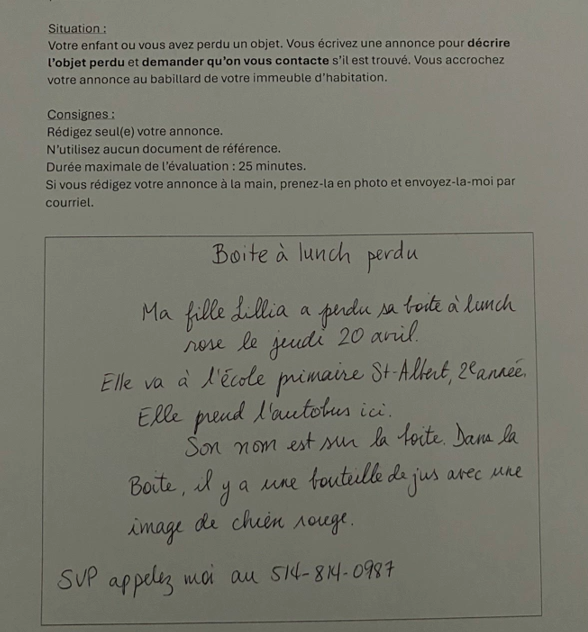 Situation :
Votre enfant ou vous avez perdu un objet. Vous écrivez une annonce pour décrire
l'objet perdu et demander qu'on vous contacte s'il est trouvé. Vous accrochez
votre annonce au babillard de votre immeuble d'habitation.
Consignes :
Rédigez seul(e) votre annonce.
N'utilisez aucun document de référence.
Durée maximale de l'évaluation : 25 minutes.
Si vous rédigez votre annonce à la main, prenez-la en photo et envoyez-la-moi par
courriel.
Boite à lunch perdu
Ma fille Lillia a perdu sa boite à lunch
rose le jeudi 20 avril.
Elle va à l'école primaire St-Albert, 2e année.
Elle prend l'autobus ici.
Son nom est sur la boite. Dans la
Boite, il y a une bouteille de jus avec une
image de chien rouge.
SVP appelez moi au 514-814-0987